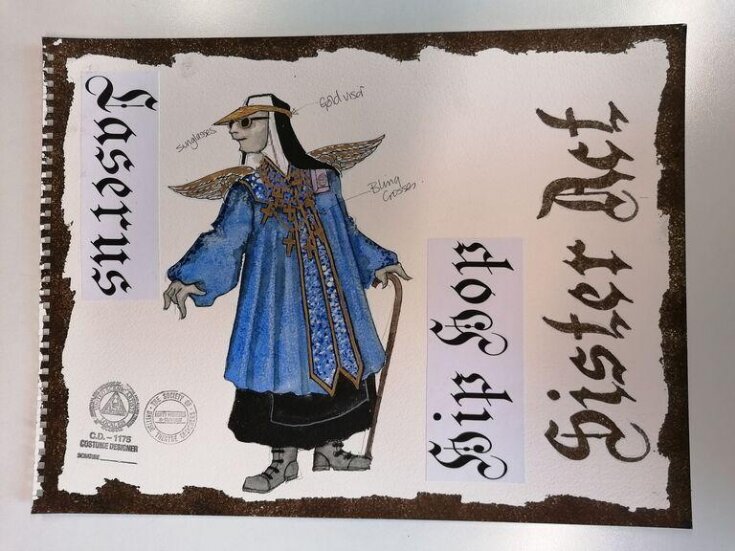 Laserus
sunglasses
Gold visor
Bling
Crosses
Hip Hop
Sister Act
THE SOCIETY OF BRITISH THEATRE DESIGNERS
C.D. - 1175
COSTUME DESIGNER
SIGNATURE